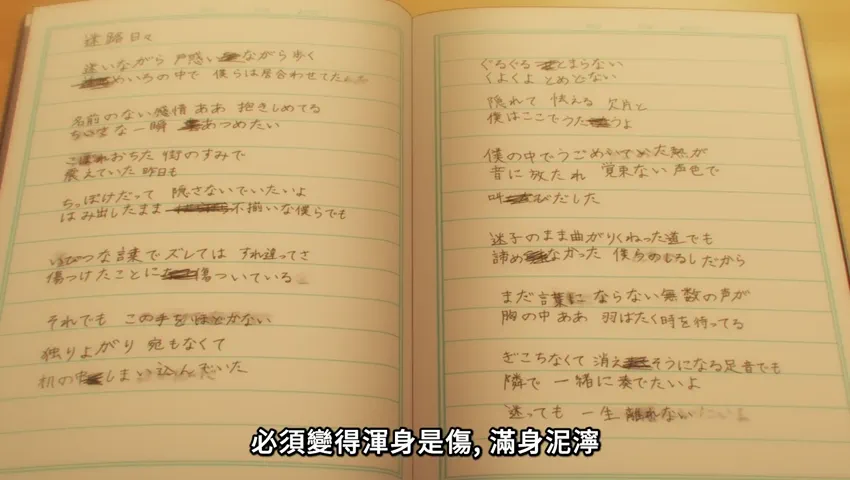 迷路日々
迷いながら 戸惑いながら歩く
めいろの中で 僕らは居合わせてた
名前のない感情 ああ 抱きしめてる
ちいさな一瞬 あつめたい
こぼれおちた 街のすみで
震えていた 昨日も
ちっぽけだって 隠さないでいたいよ
はみ出したまま 不揃いな僕らでも
いびつな言葉で ズレては すれ違ってさ
傷つけたことに 傷ついている
それでも この手を ほどかない
独りよがり 宛もなくて
机の中 しまい込んでいた
ぐるぐる とまらない
くよくよ とめどない
隠れて 怯える 欠片と
僕はここでうたうよ
僕の中でうごめいてた熱が
音に放たれ 覚束ない声色で
叫びだした
迷子のまま曲がりくねった道でも
諦めなかった 僕らのしるしだから
まだ言葉に ならない無数の声が
胸の中 ああ 羽ばたく時を待ってる
ぎこちなくて 消えそうになる足音でも
隣で 一緒に奏でたいよ
迷っても 一生 離れない
必須變得渾身是傷, 滿身泥濘